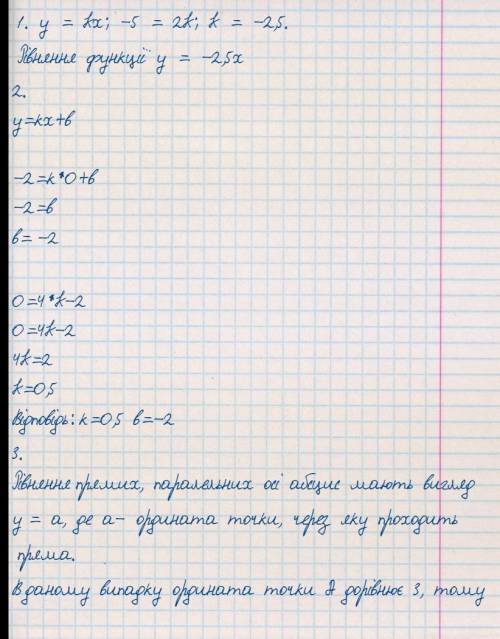 1. y = kx; -5 = 2k; k = -2,5.
Рівняння функції y = -2,5x
2.
y=kx+b
-2=k*0+b
-2=b
b= -2
0=4*k-2
0=4k-2
4k=2
k=0,5
Відповідь: k=0,5 b=-2
3.
Рівняння прямих, паралельних осі абсцис мають вигляд
y = a, де a- ордината точки, через яку проходить
пряма.
В даному випадку ордината точки A дорівнює 3, тому